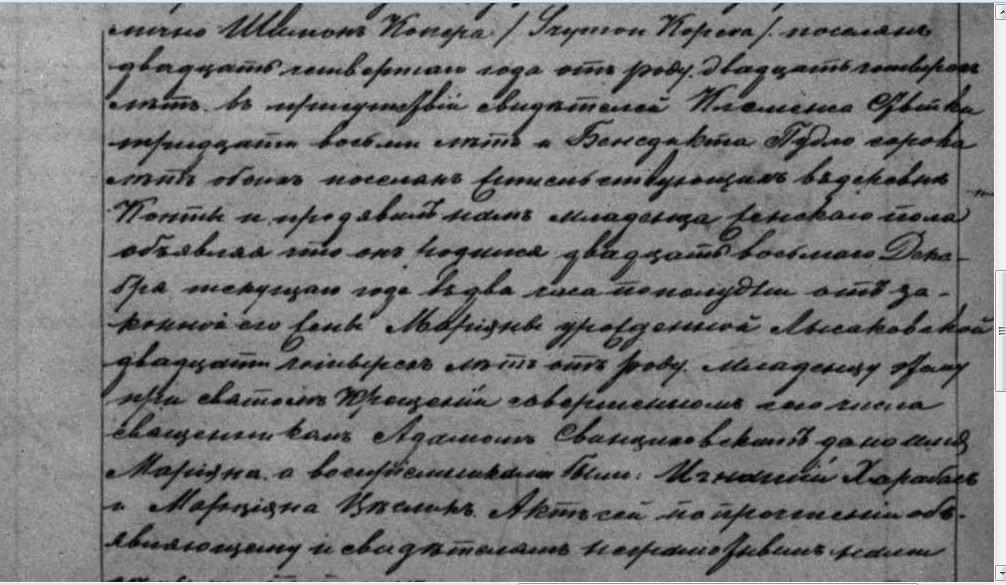 лично Шимонъ Копера /Szymon Kopera/. поселянъ
двадцать четвертаго года отъ роду. двадцать четырехъ
лѣтъ. въ присутствіи свидѣтелей Клеменса
тридцати восьми лѣтъ и Бенедикта Пудло сорока
лѣтъ обоихъ поселянъ жительствующихъ въ деревнѣ
Конты и предъявилъ намъ младенца женскаго пола
объявляя что онъ родился двадцать восьмаго Дека-
бря текущаго года въ два часа по полудни отъ за-
конной его жены Маріянны урожденной Лысаковской
двадцати четырехъ лѣтъ отъ роду. Младенцу этому
при святомъ Крещеніи совершенномъ сего числа
священникомъ Адамомъ дано имя
Маріянна. а воспріемниками были: Игнатій Харабасъ
и Марціянна Цѣсликъ. Актъ сей по прочтеніи объ-
являющему и свидѣтелямъ неграмотнымъ нами